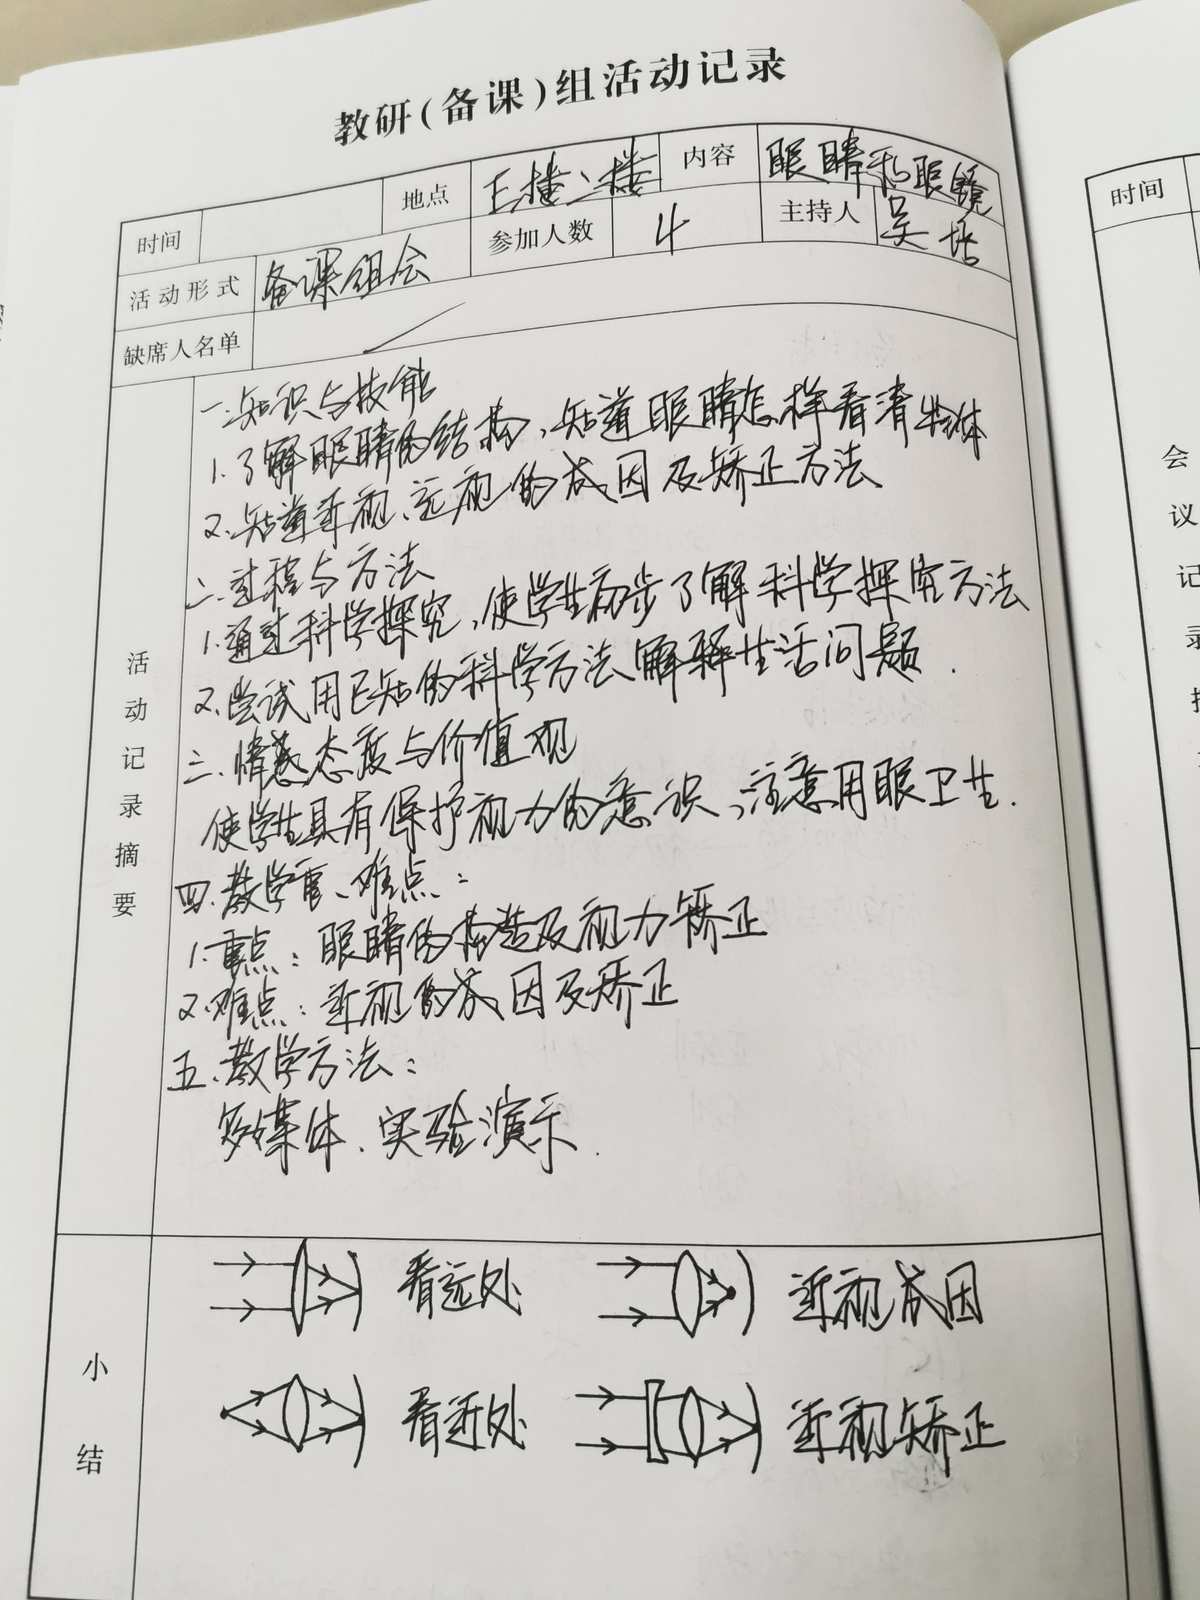 教研(备课)组活动记录
时间 地点 二楼 内容 眼睛和眼镜
活动形式 备课组会 参加人数 4 主持人 吴
缺席人名单
活动记录摘要
一.知识与技能
1.了解眼睛的结构,知道眼睛怎样看清物体
2.知道近视、远视的成因及矫正方法
二.过程与方法
1.通过科学探究,使学生初步了解科学探究方法
2.尝试用已知的科学方法解释生活问题.
三.情感态度与价值观
使学生具有保护视力的意识,注意用眼卫生.
四.教学重、难点:
1.重点:眼睛的构造及视力矫正
2.难点:近视的成因及矫正
五.教学方法:
多媒体、实验演示.
小结
看远处 近视成因
看近处 近视矫正
时间
会议记录